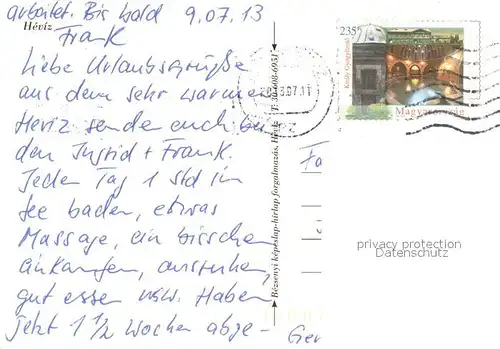 arbeitet. Bis bald 9.07.13
Frank
Hévíz
Liebe Urlaubsgrüße
aus dem sehr warmen
Heviz sende euch bei
den Ingrid + Frank.
Jeden Tag 1 Std im
See baden, etwas
Massage, ein bisschen
einkaufen, ausruhen,
gut essen usw. Haben
jetzt 1 1/2 Wochen abge-
Bézsenyi képeslap-hírlap forgalmazás, Hévíz T: 30-008-6951
235
Magyarország
Fa
Ger
privacy protection
Datenschutz